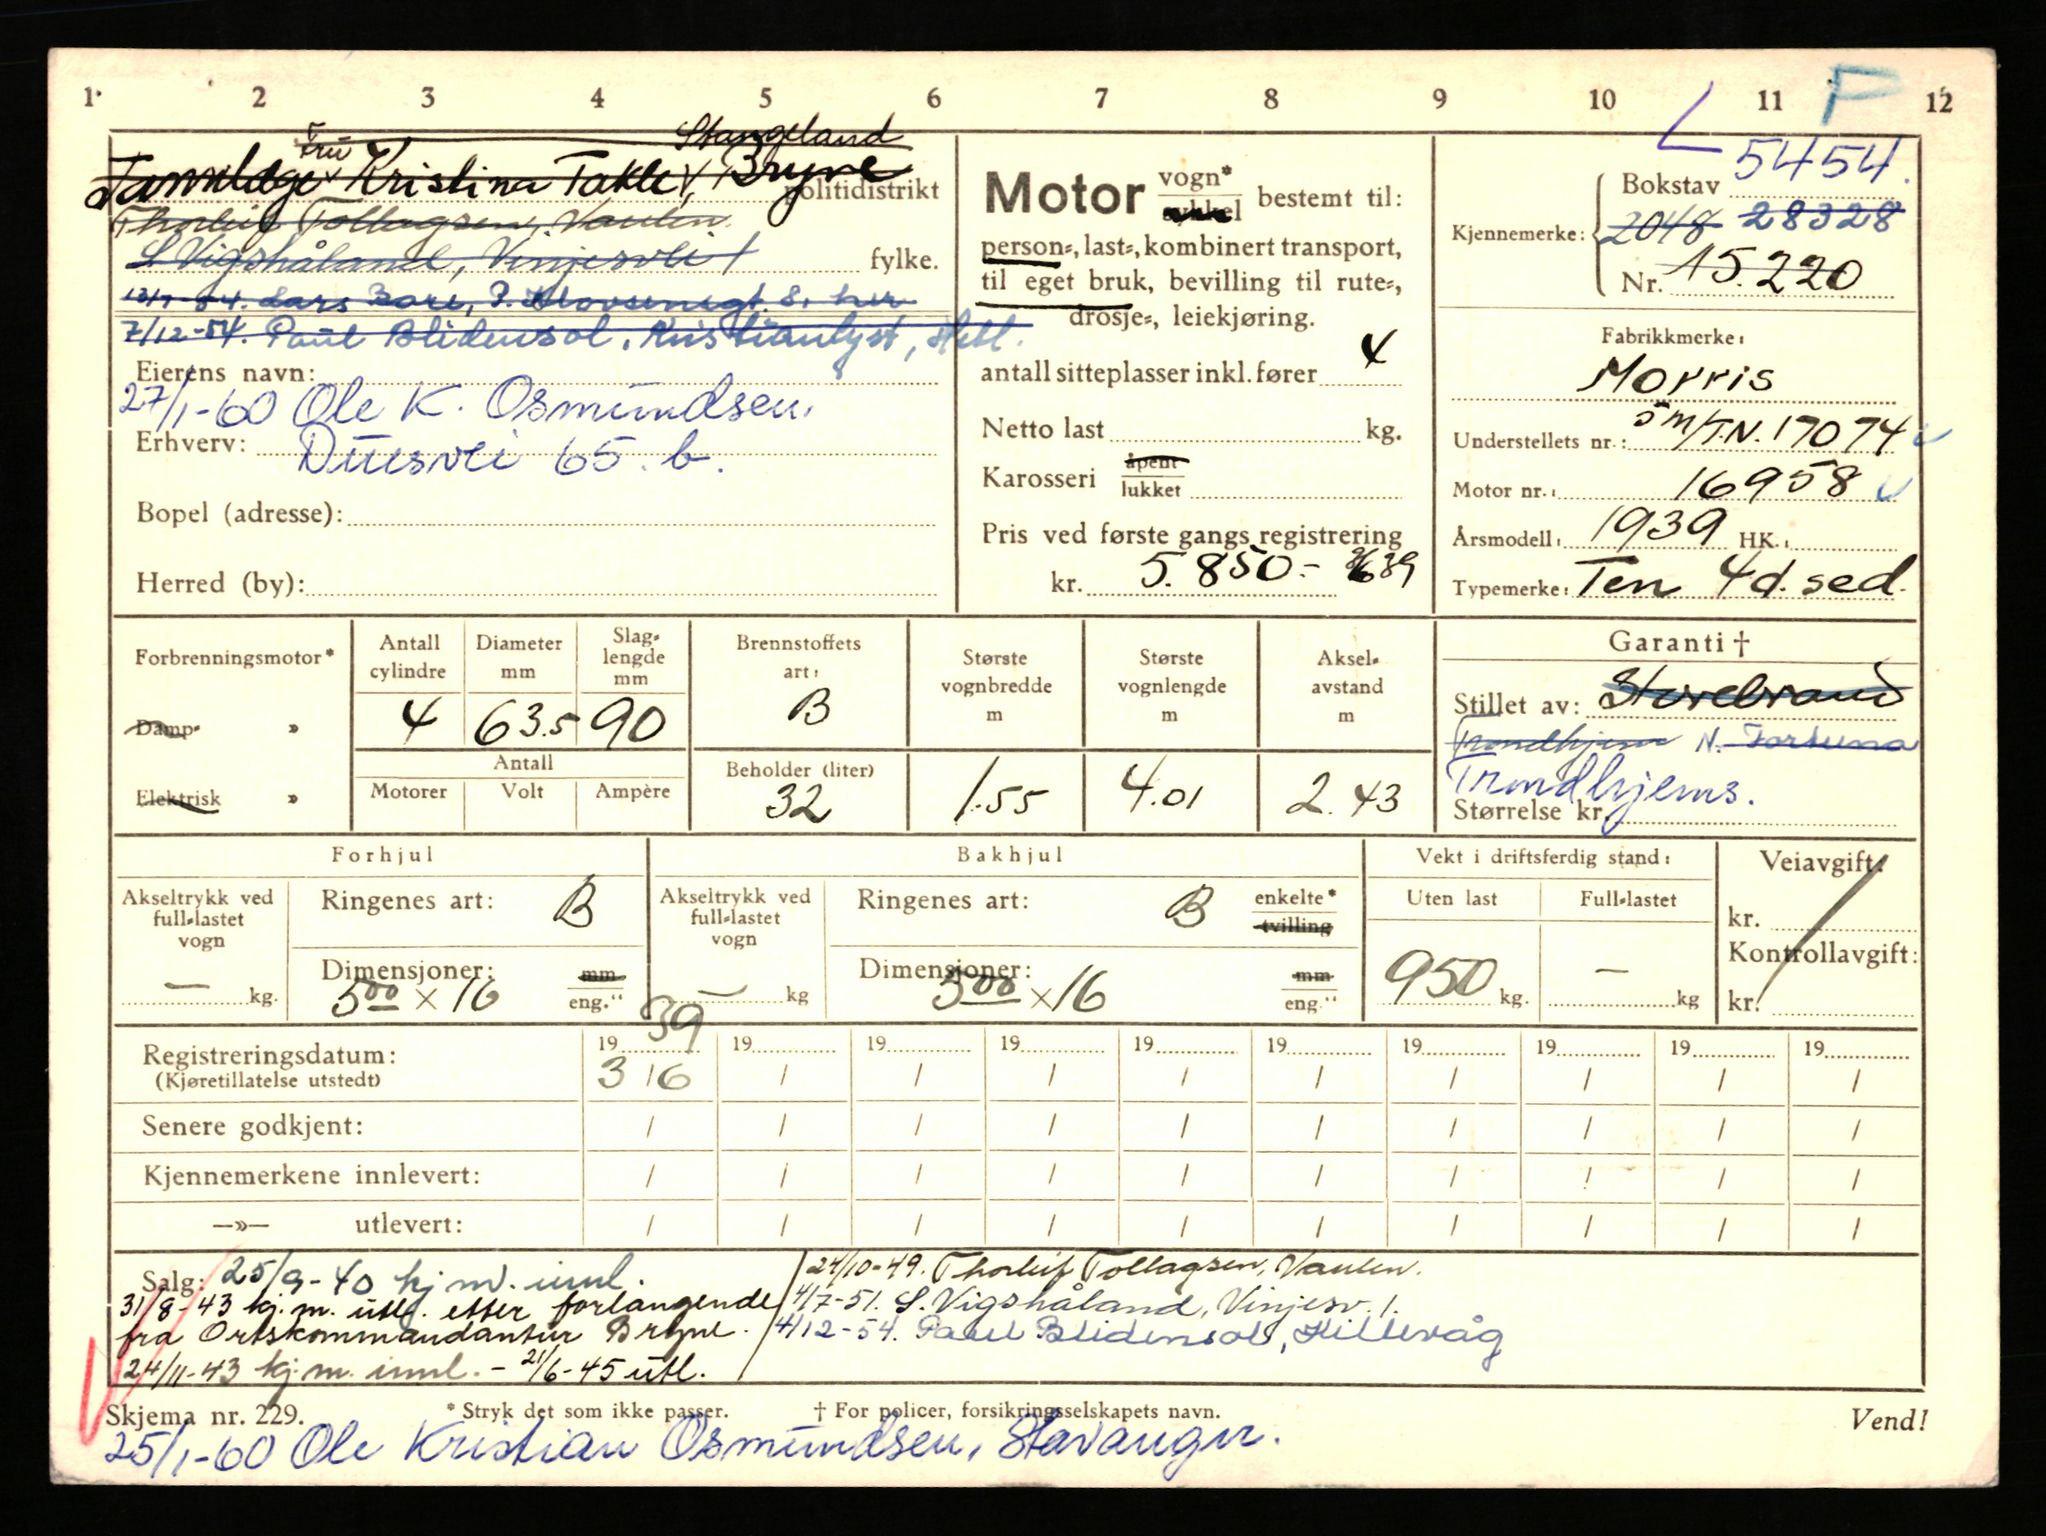 1 2 3 4 5 6 7 8 9 10 11 12
P
Stangeland
Fru
Tannlæge Kristina Takle, Bryne
politidistrikt
Thorleif Tollagsen, Vaulen.
S. Vigshåland, Vinjesvei 1
fylke.
Lars Bore,
7/12-54. Paul Blidensol, Kristianlyst, Hetl.
Eierens navn:
27/1-60 Ole K. Osmundsen.
Erhverv:
Duesvei 65. b.
Bopel (adresse):
Herred (by):
Motor vogn* sykkel bestemt til:
person-, last-, kombinert transport,
til eget bruk, bevilling til rute-,
drosje-, leiekjøring.
antall sitteplasser inkl. fører 4
Netto last kg.
Karosseri åpent lukket
Pris ved første gangs registrering
kr. 5.850.- 3/6 39
L 5454.
Bokstav
Kjennemerke: 2048 28328
Nr. 15.220
Fabrikkmerke:
Morris
Understellets nr.: SM/T.N. 17074
Motor nr.: 16958
Årsmodell: 1939 HK.:
Typemerke: Ten 4d. sed.
Forbrenningsmotor*
Damp- »
Elektrisk »
Antall cylindre 4
Diameter mm 63.5
Slaglengde mm 90
Antall
Motorer Volt Ampère
Brennstoffets art: B
Beholder (liter) 32
Største vognbredde m 1.55
Største vognlengde m 4.01
Aksel-avstand m 2.43
Garanti †
Stillet av: Storebrand
Trondhjems N. Fortuna
Trondhjems.
Størrelse kr.
Forhjul
Akseltrykk ved full-lastet vogn — kg.
Ringenes art: B
Dimensjoner: mm
5 00 × 16 eng."
Bakhjul
Akseltrykk ved full-lastet vogn — kg
Ringenes art: B enkelte* tvilling
Dimensjoner: mm
5 00 × 16 eng."
Vekt i driftsferdig stand:
Uten last Full-lastet
950 kg. — kg
Veiavgift:
kr.
Kontrollavgift:
kr.
Registreringsdatum: 19 39 19 19 19 19 19 19 19 19 19
(Kjøretillatelse utstedt) 3/6 / / / / / / / / /
Senere godkjent: / / / / / / / / / /
Kjennemerkene innlevert: / / / / / / / / / /
—»— utlevert: / / / / / / / / / /
Salg: 25/9-40 kj. m. innl.
31/8-43 kj. m. utl. etter forlangende
fra Ortskommandantur Bryne.
24/11-43 kj. m. innl. - 21/6-45 utl.
24/10-49. Thorleif Tollagsen, Vaulen.
4/7-51. S. Vigshåland, Vinjesv. 1.
4/12-54. Paul Blidensol, Hillevåg
Skjema nr. 229. * Stryk det som ikke passer. † For policer, forsikringsselskapets navn. Vend!
25/1-60 Ole Kristian Osmundsen, Stavanger.